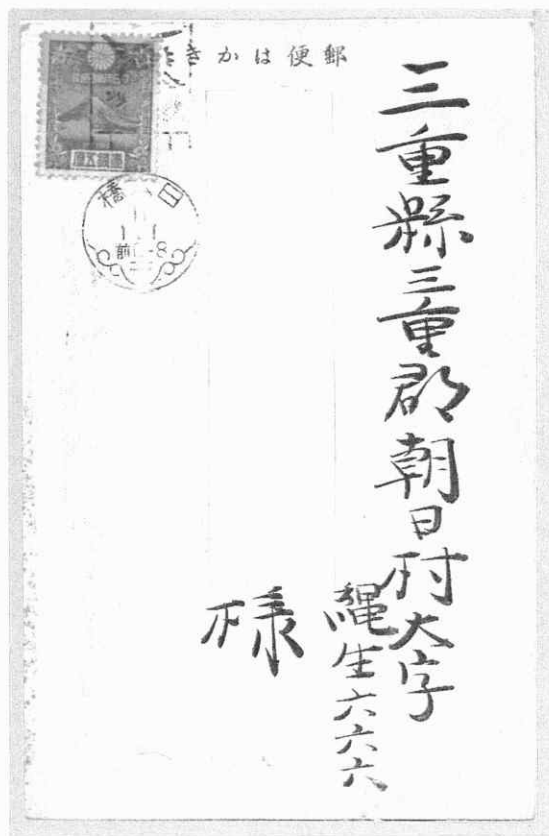 郵便はかき
三重縣三重郡朝日村大字
縄生六六六
様